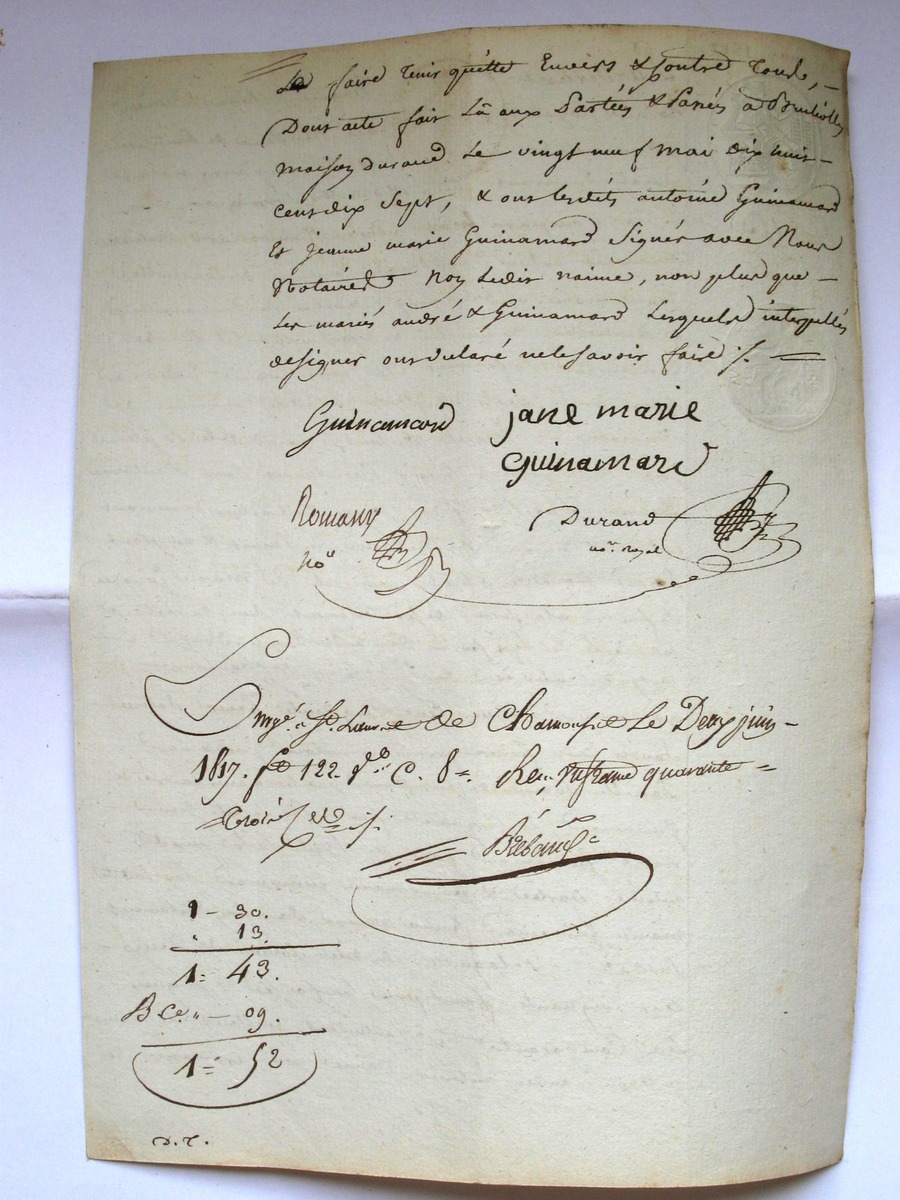 faire tenir quitte Envers & Contre tous, –
Dont acte fait Lû aux Parties & Passé à
maison durand Le vingt neuf mai dix huit –
cent dix sept, & ont lesdits antoine Guinamard
Et jeanne marie Guinamard Signés avec Nous
Notaires Non Ledit naime, non plus que –
Les mariés andré & Guinamard Lesquels interpellés
de signer ont déclaré ne le savoir faire ./. =
Guinamard
jane marie
Guinamard
Romany
No.re
Durand
no.re Royal
Enregé. à St. Laurent de Chamousset Le Deux juin –
1817. f° 122. v° C. 8 =. Reçu un franc quarante =
Trois ./.
1 – 30.
. 13.
1 = 43.
B Ce. " – 09.
1 = 52
D.T.